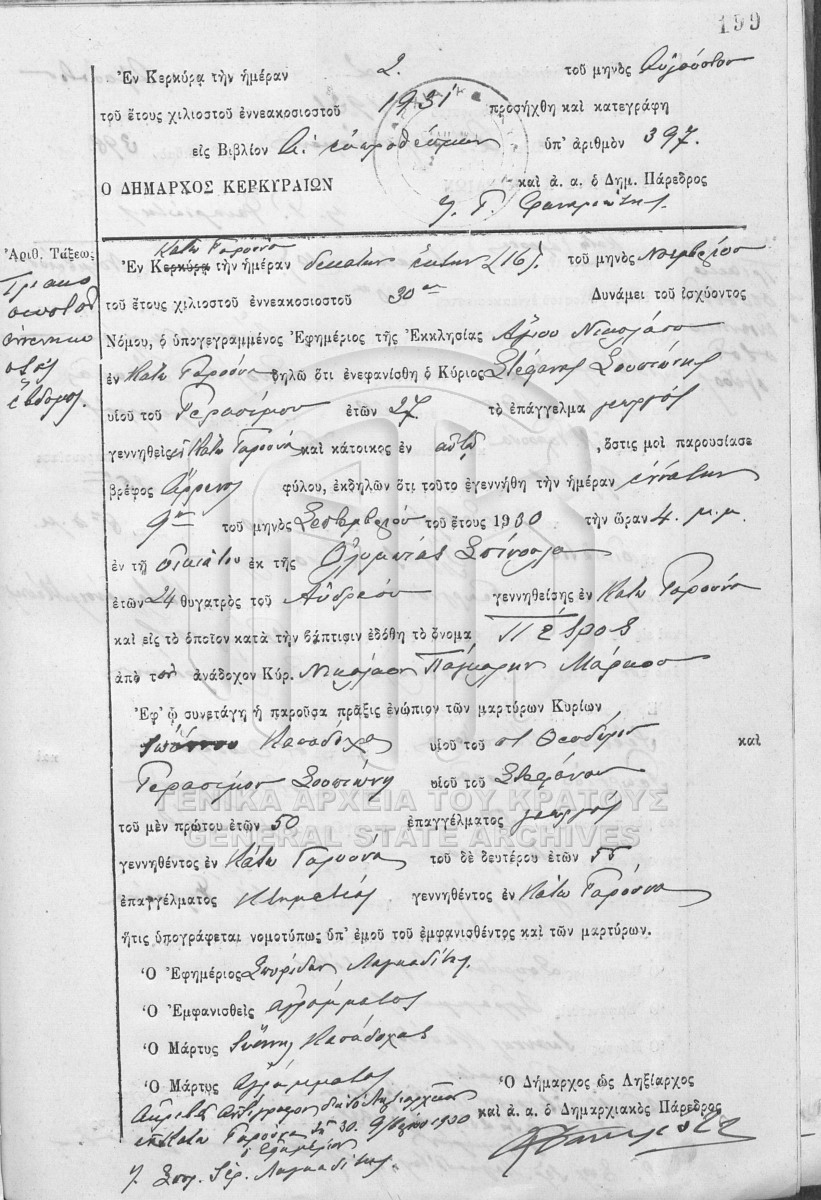 199
Ἐν Κερκύρᾳ τὴν ἡμέραν 2. τοῦ μηνὸς Αὐγούστου
τοῦ ἔτους χιλιοστοῦ ἐννεακοσιοστοῦ 1931 προσήχθη καὶ κατεγράφη
εἰς Βιβλίον ὑπ' ἀριθμὸν 397.
Ο ΔΗΜΑΡΧΟΣ ΚΕΡΚΥΡΑΙΩΝ καὶ ἀ. α. ὁ Δημ. Πάρεδρος
Ἀριθ. Τάξεως
Κάτω Γαρούνα
Ἐν Κερκύρᾳ τὴν ἡμέραν δεκάτην ἕκτην (16) τοῦ μηνὸς Νοεμβρίου
τοῦ ἔτους χιλιοστοῦ ἐννεακοσιοστοῦ 30οῦ Δυνάμει τοῦ ἰσχύοντος
Νόμου, ὁ ὑπογεγραμμένος Ἐφημέριος τῆς Ἐκκλησίας Ἁγίου Νικολάου
ἐν Κάτω Γαρούνα δηλῶ ὅτι ἐνεφανίσθη ὁ Κύριος Στέφανος Σουπιώνης
υἱοῦ τοῦ Γερασίμου ἐτῶν 27 τὸ ἐπάγγελμα γεωργός
γεννηθεὶς Κάτω Γαρούνα καὶ κάτοικος ἐν αὐτῷ , ὅστις μοι παρουσίασε
βρέφος ἄρρενος φύλου, ἐκδηλῶν ὅτι τοῦτο ἐγεννήθη τὴν ἡμέραν ἐννάτην
9ην τοῦ μηνὸς Σεπτεμβρίου τοῦ ἔτους 1930 τὴν ὥραν 4. μ.μ.
ἐν τῇ οἰκίᾳ του ἐκ τῆς Ὀλυμπίας Σπίνουλα
ἐτῶν 24 θυγατρὸς τοῦ Ἀνδρέου γεννηθείσης ἐν Κάτω Γαρούνα
καὶ εἰς τὸ ὁποῖον κατὰ τὴν βάπτισιν ἐδόθη τὸ ὄνομα Πέτρος
ἀπὸ τὸν ἀνάδοχον Κύρ. Νικόλαον Μάρκου
Ἐφ' ᾧ συνετάγη ἡ παροῦσα πρᾶξις ἐνώπιον τῶν μαρτύρων Κυρίων
Ἰωάννου Κασάδοχα υἱοῦ τοῦ Θεοδώρου καὶ
Γερασίμου Σουπιώνη υἱοῦ τοῦ Στεφάνου
ΓΕΝΙΚΑ ΑΡΧΕΙΑ ΤΟΥ ΚΡΑΤΟΥΣ
τοῦ μὲν πρώτου ἐτῶν 50 ἐπαγγέλματος γεωργός
GENERAL STATE ARCHIVES
γεννηθέντος ἐν Κάτω Γαρούνα τοῦ δὲ δευτέρου ἐτῶν 55
ἐπαγγέλματος Κτηματίας γεννηθέντος ἐν Κάτω Γαρούνα
ἥτις ὑπογράφεται νομοτύπως ὑπ' ἐμοῦ τοῦ ἐμφανισθέντος καὶ τῶν μαρτύρων.
Ὁ Ἐφημέριος Σπυρίδων Λαγκαδίτης
Ὁ Ἐμφανισθεὶς ἀγράμματος
Ὁ Μάρτυς Ἰωάννης Κασάδοχας
Ὁ Μάρτυς ἀγράμματος
Ὁ Δήμαρχος ὡς Ληξίαρχος
καὶ ἀ. α. ὁ Δημαρχιακὸς Πάρεδρος
ἐν Κάτω Γαρούνα τῇ 30. 1930
ὁ Ἐφημέριος
Λαγκαδίτης.